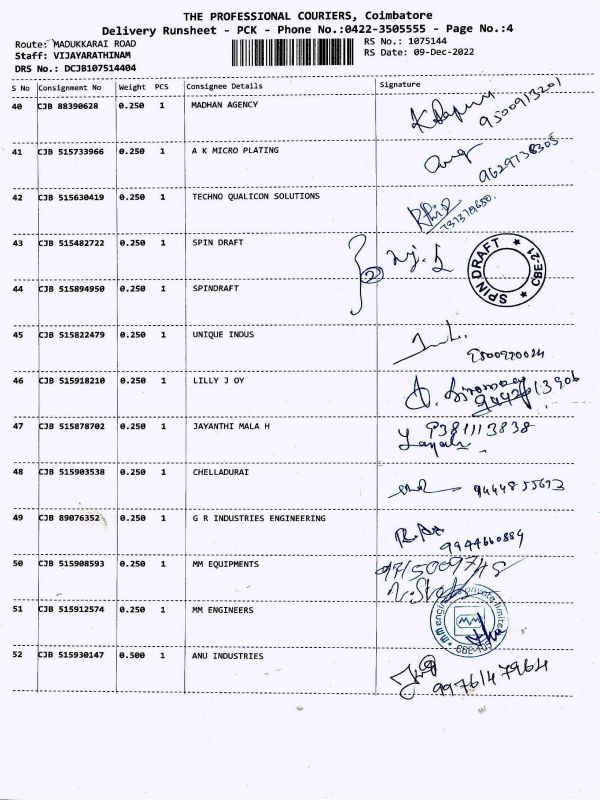 THE PROFESSIONAL COURIERS, Coimbatore
Delivery Runsheet - PCK - Phone No.:0422-3505555 - Page No.:4
Route: MADUKKARAI ROAD RS No.: 1075144
Staff: VIJAYARATHINAM RS Date: 09-Dec-2022
DRS No.: DCJB107514404
S No Consignment No Weight PCS Consignee Details Signature
40 CJB 88390628 0.250 1 MADHAN AGENCY
9500913201
41 CJB 515733966 0.250 1 A K MICRO PLATING
42 CJB 515630419 0.250 1 TECHNO QUALICON SOLUTIONS
43 CJB 515482722 0.250 1 SPIN DRAFT
2
SPIN DRAFT CBE-21
44 CJB 515894950 0.250 1 SPINDRAFT
45 CJB 515822479 0.250 1 UNIQUE INDUS
46 CJB 515918210 0.250 1 LILLY J OY
47 CJB 515878702 0.250 1 JAYANTHI MALA H
9381113838
48 CJB 515903538 0.250 1 CHELLADURAI
49 CJB 89076352 0.250 1 G R INDUSTRIES ENGINEERING
9944660884
50 CJB 515908593 0.250 1 MM EQUIPMENTS
51 CJB 515912574 0.250 1 MM ENGINEERS
52 CJB 515930147 0.500 1 ANU INDUSTRIES
9976147964